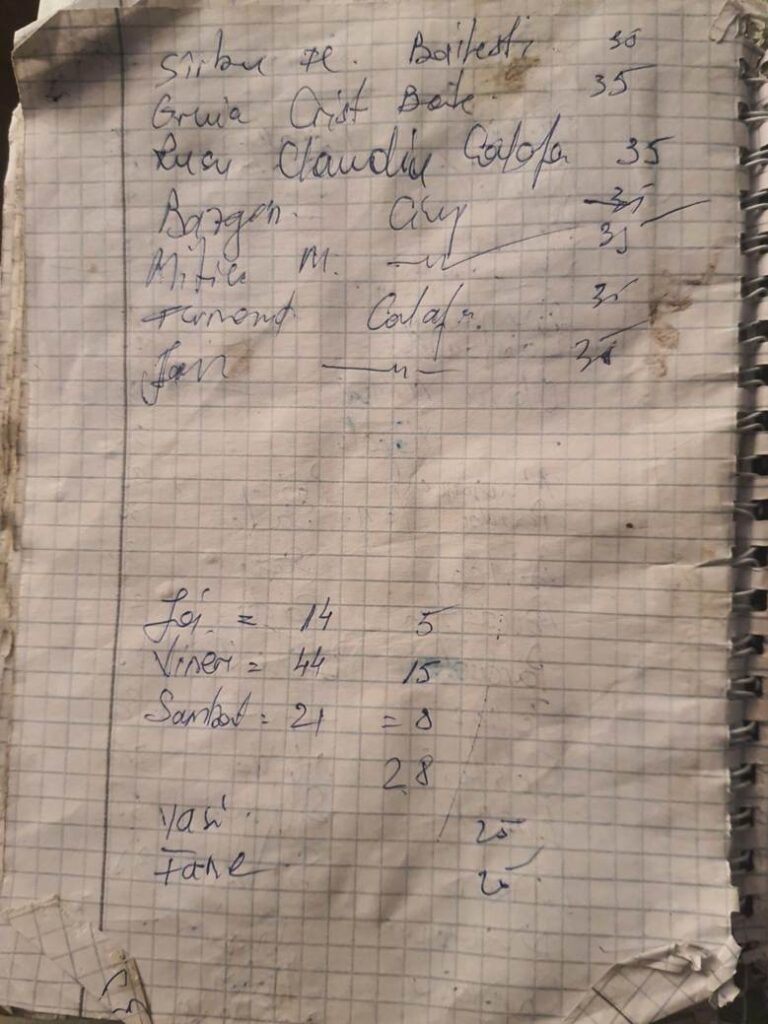 Sîrbu Fl. Bailesti 35
Gruia Crist Baile 35
Rusu Claudiu Calafa 35
Bazgan 35
Mitica M. —〃— 35
Fernand Calafa 35
Jan —〃— 35
Joi = 14 5
Vineri = 44 15
Sambat = 21 = 8
28
Vasi 25
Fane 25